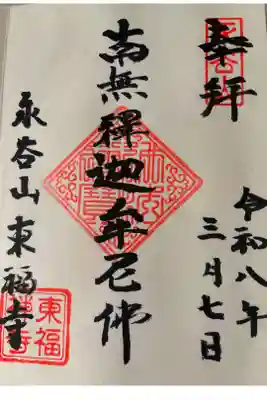 奉拝
令和八年
三月七日
南無釋迦牟尼佛
永谷山東福寺
東福